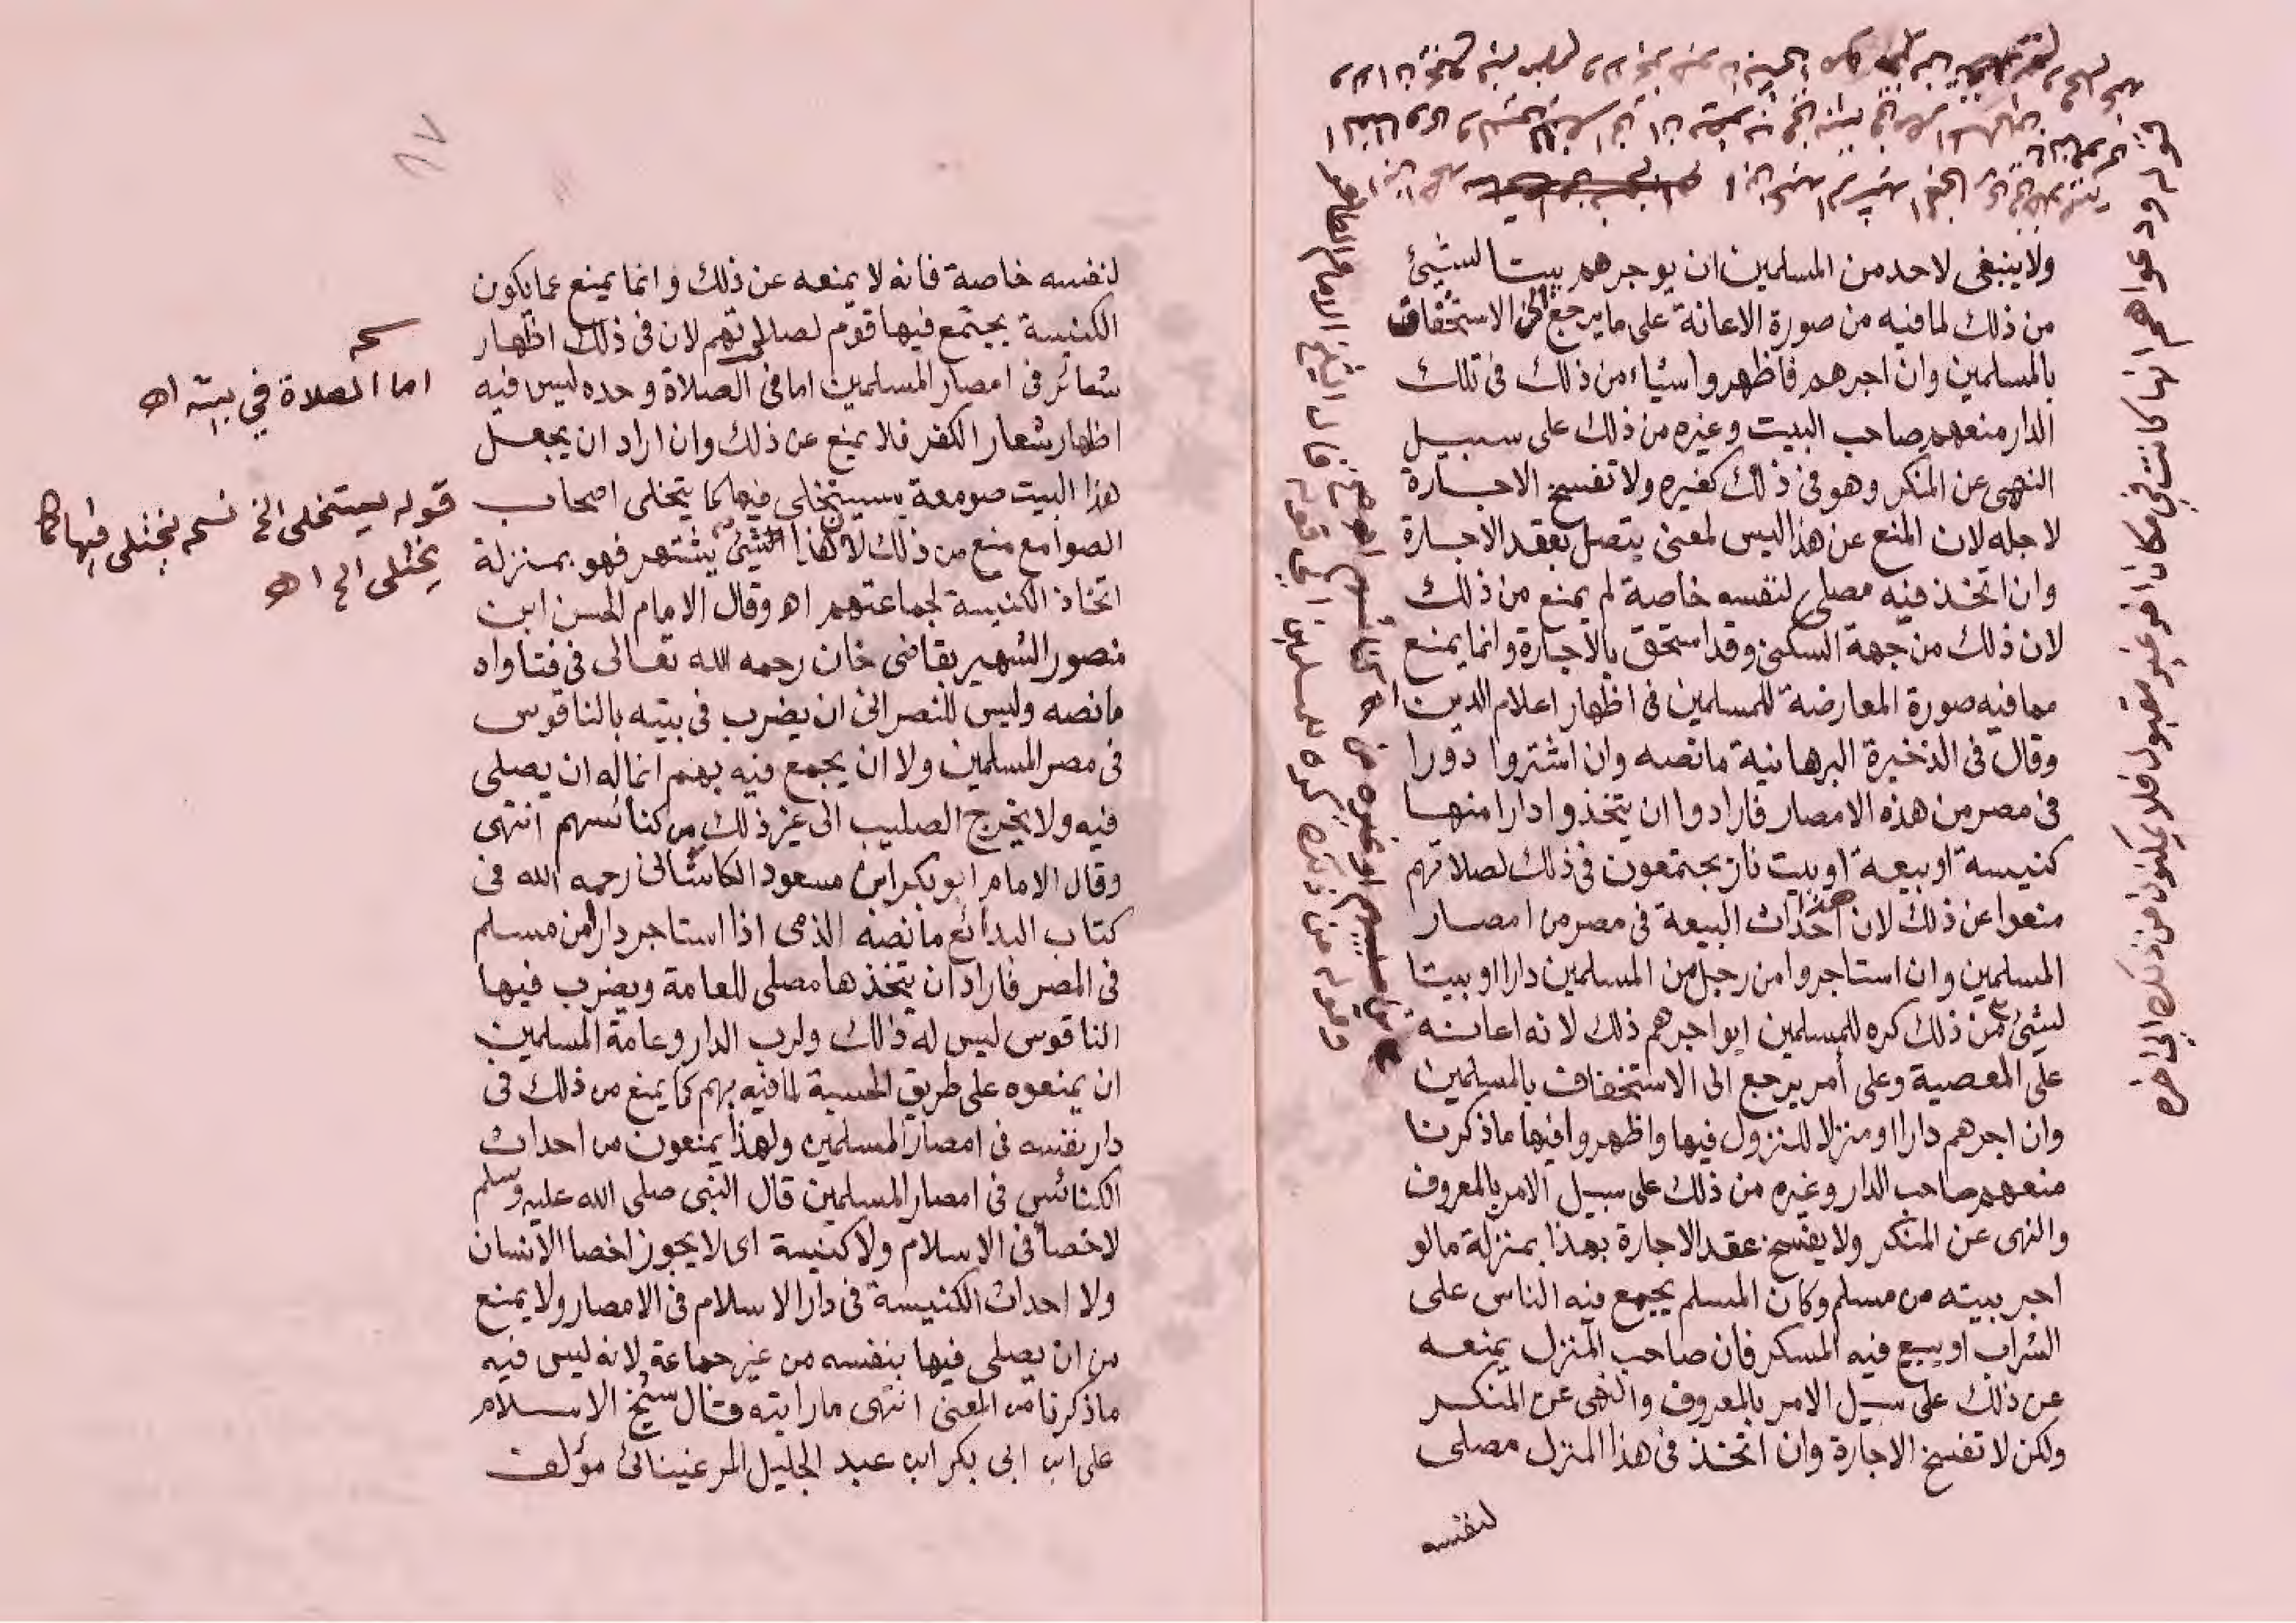 ولا ينبغى لاحد من المسلمين ان يوجرهم بيتا لشيئ
من ذلك لما فيه من صورة الاعانة على ما يرجع الى الاستخفاف
بالمسلمين وان اجرهم فاظهروا اشياء من ذلك فى تلك
الدار منعهم صاحب البيت وغيره من ذلك على سبيل
النهى عن المنكر وهو فى ذلك كغيره ولا تفسخ الاجارة
لاجله لان المنع عن هذا ليس لمعنى يتصل بعقد الاجارة
وان اتخذ فيه مصلى لنفسه خاصة لم يمنع من ذلك
لان ذلك من جهة السكنى وقد استحق بالاجارة وانما يمنع
مما فيه صورة المعارضة للمسلمين فى اظهار اعلام الدين اه
وقال فى الذخيرة البرهانية ما نصه وان اشتروا دورا
فى مصر من هذه الامصار فارادوا ان يتخذوا دارا منها
كنيسة او بيعة او بيت نار يجتمعون فى ذلك لصلاتهم
منعوا عن ذلك لان هذا احداث البيعة فى مصر من امصار
المسلمين وان استاجروا من رجل من المسلمين دارا او بيتا
لشيئ من ذلك كره للمسلمين ان يواجرهم ذلك لانه اعانة
على المعصية وعلى أمر يرجع الى الاستخفاف بالمسلمين
وان اجرهم دارا او منزلا للنزول فيها واظهروا فيها ما ذكرنا
منعهم صاحب الدار وغيره من ذلك على سبيل الامر بالمعروف
والنهى عن المنكر ولا يفسخ عقد الاجارة بهذا بمنزلة ما لو
اجر بيته من مسلم وكان المسلم يجمع فيه الناس على
الشراب او يبيع فيه المسكر فان صاحب المنزل يمنعه
عن ذلك على سبيل الامر بالمعروف والنهى عن المنكر
ولكن لا تفسخ الاجارة وان اتخذ فى هذا المنزل مصلى
لنفسه
ودعواهم انها كانت في مكان اخر غير مقبول فلا يمكنون من ذلك الى اخره
لنفسه خاصة فانه لا يمنعه عن ذلك وانما يمنع عما يكون
الكنيسة يجتمع فيها قوم لصلاتهم لان فى ذلك اظهار
شعائر فى امصار المسلمين اما فى الصلاة وحده ليس فيه
اظهار شعار الكفر فلا يمنع عن ذلك وان اراد ان يجعل
هذا البيت صومعة يستخلى فيها كما يتخلى اصحاب
الصوامع منع من ذلك لان هذا الشيئ يشتهر فهو بمنزلة
اتخاذ الكنيسة لجماعتهم اه وقال الامام الحسن ابن
منصور الشهير بقاضى خان رحمه الله تعالى فى فتاواه
ما نصه وليس للنصرانى ان يضرب فى بيته بالناقوس
فى مصر المسلمين ولا ان يجمع فيه بهم انما له ان يصلى
فيه ولا يخرج الصليب الى غير ذلك من كنائسهم انتهى
وقال الامام ابو بكر ابن مسعود الكاشانى رحمه الله فى
كتاب البدائع ما نصه الذمى اذا استاجر دارا من مسلم
فى المصر فاراد ان يتخذها مصلى للعامة ويضرب فيها
الناقوس ليس له ذالك ولرب الدار وعامة المسلمين
ان يمنعوه على طريق الحسبة لما فيه بهم كما يمنع من ذلك فى
دار نفسه فى امصار المسلمين ولهذا يمنعون من احداث
الكنائس فى امصار المسلمين قال النبى صلى الله عليه وسلم
لا خصأ فى الاسلام ولا كنيسة اى لا يجوز اخصا الانسان
ولا احداث الكنيسة فى دار الاسلام فى الامصار ولا يمنع
من ان يصلى فيها بنفسه من غير جماعة لانه ليس فيه
ما ذكرنا من المعنى انتهى ما رايته وقال شيخ الاسلام
على ابن ابى بكر ابن عبد الجليل المرغينانى مؤلف
اما الصلاة في بيته اه
قوله يستخلى الخ نسخه يختلى فيها كما
يختلى الخ اه